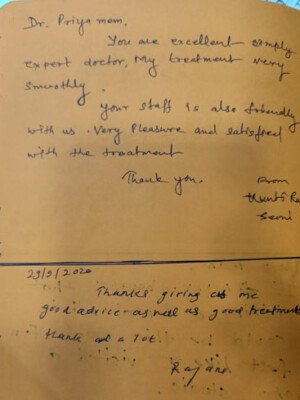 Dr. Priya mem,
You are excellent simply
expert doctor, My treatment very
smoothly.
Your staff is also friendly
with us. Very Pleasure and satisfied
with the treatment
Thank you.
From
Seoni
29/9/2020
Thanks giving me
good advice as well us good treatment
thank a lot.